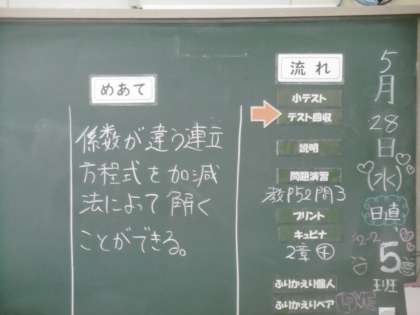 めあて
係数が違う連立
方程式を加減
法によって解く
ことができる。
流れ
小テスト
テスト回収
説明
問題演習
教P52問3
プリント
キュビナ
2章④
ふりかえり個人
ふりかえりペア
5月28日(水)
日直
5班